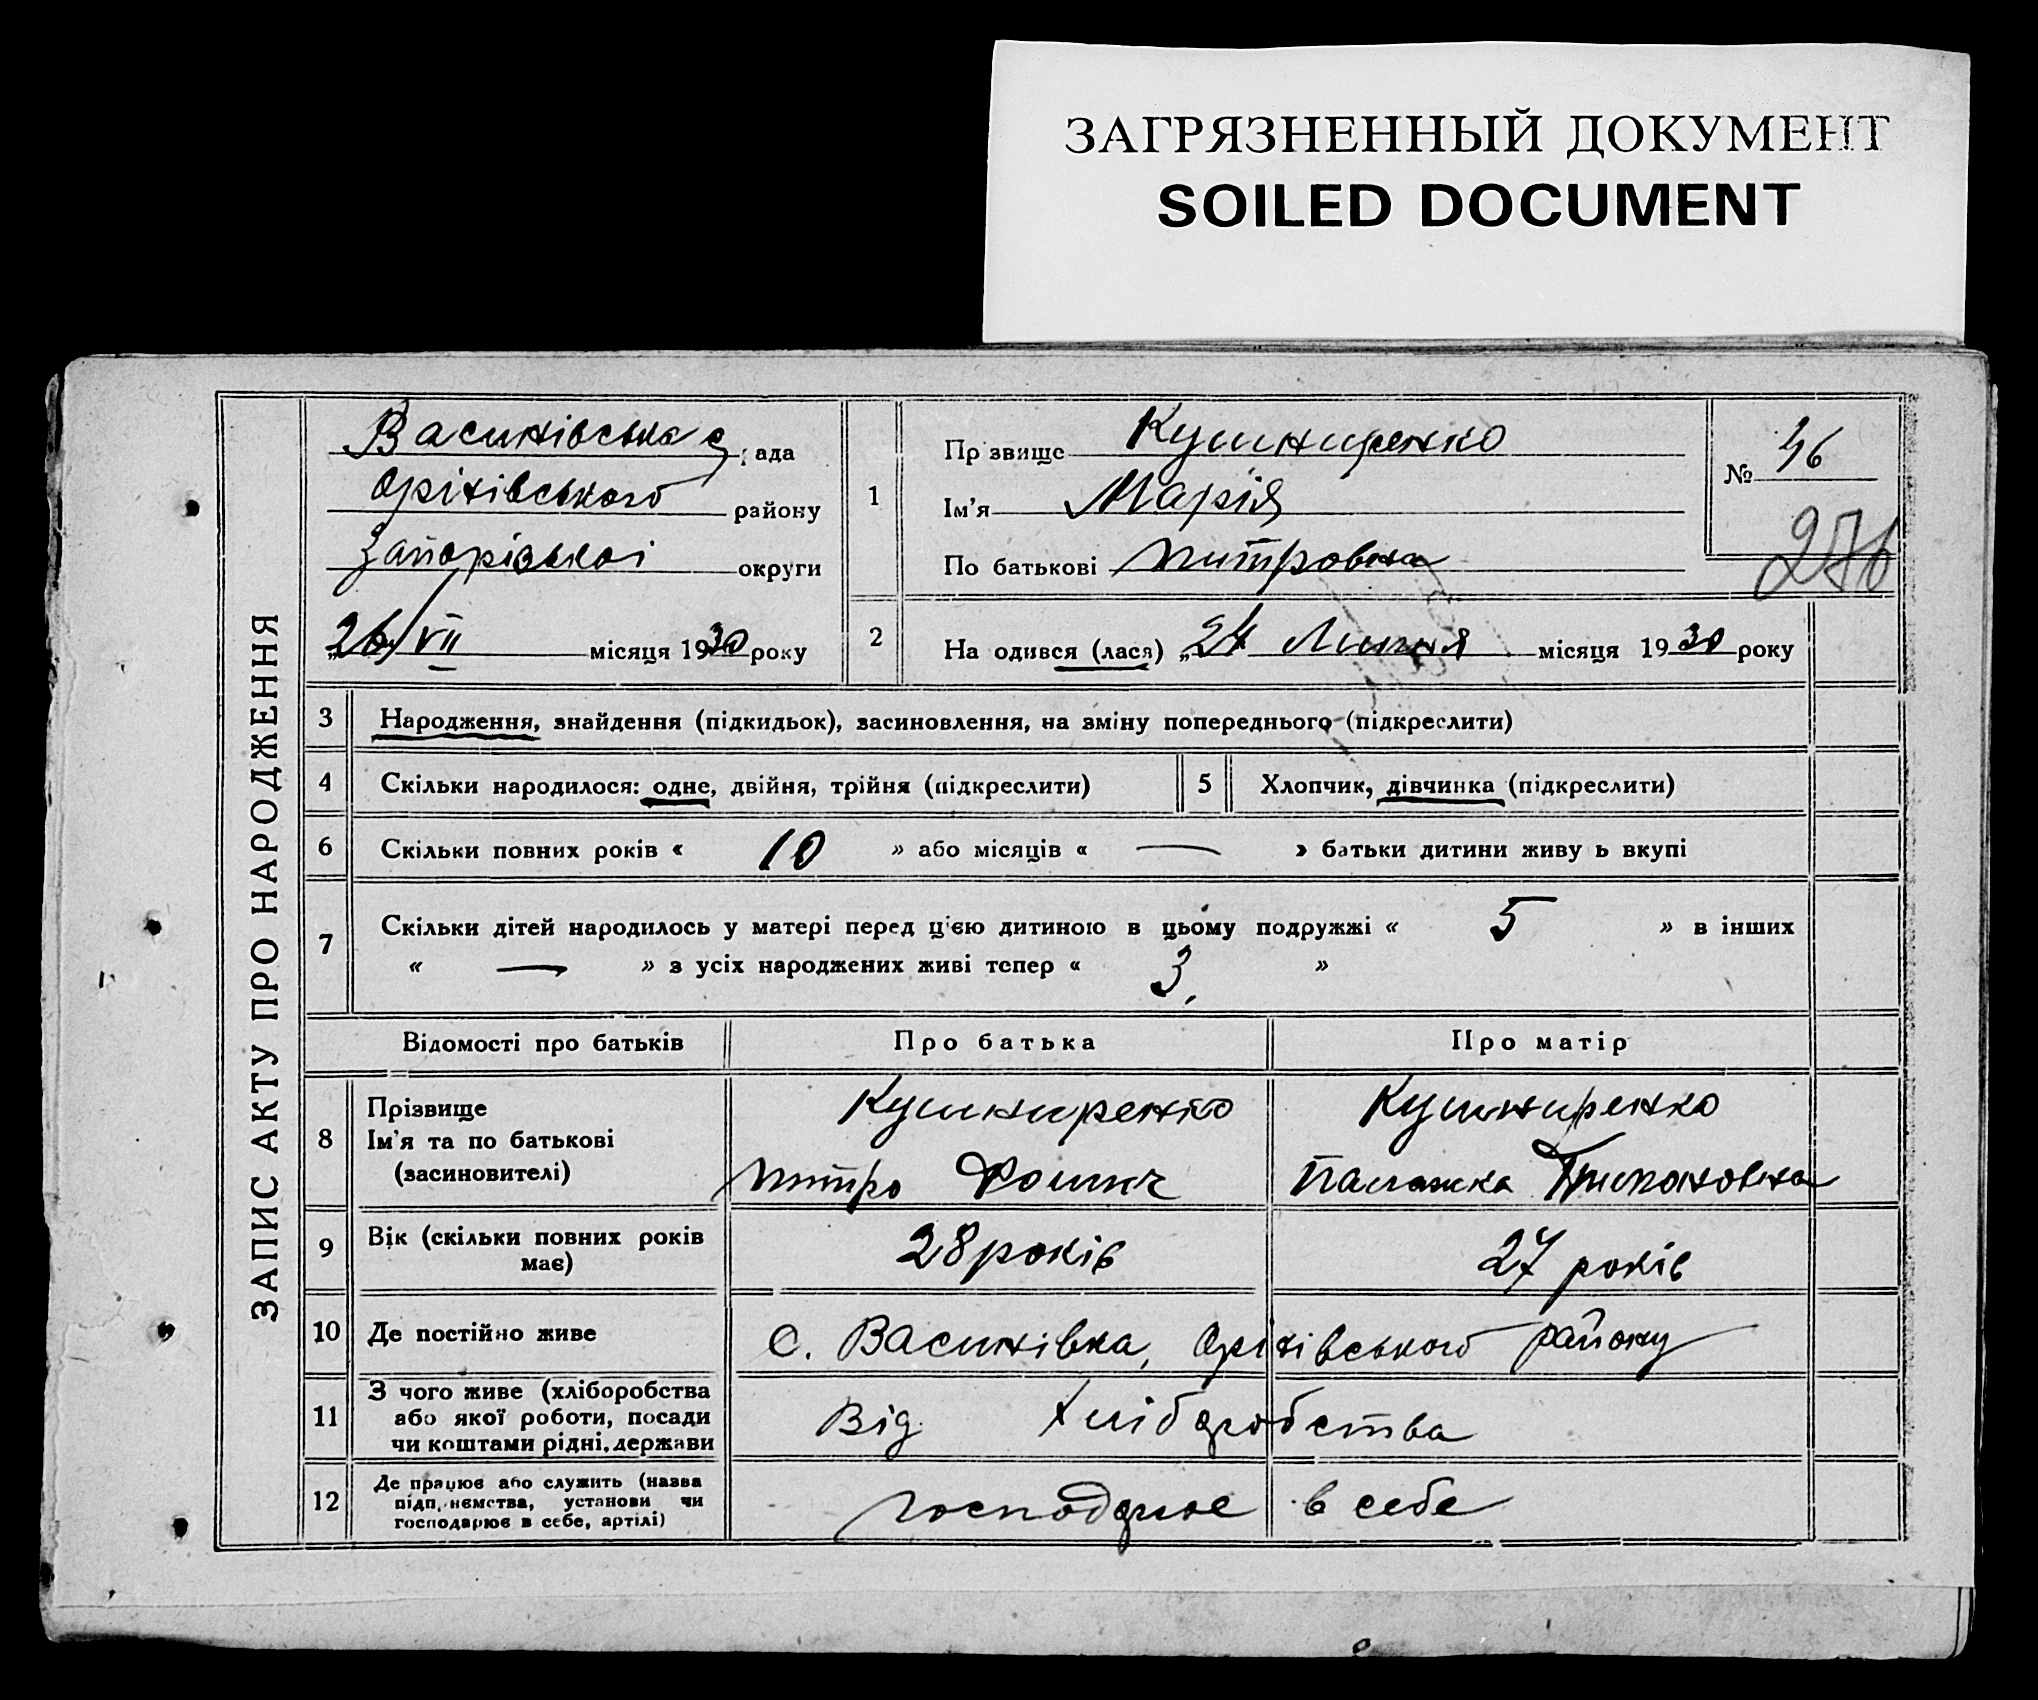 ЗАГРЯЗНЕННЫЙ ДОКУМЕНТ
SOILED DOCUMENT
ЗАПИС АКТУ ПРО НАРОДЖЕННЯ
Василівська с рада
Оріхівського району
Запорізькоі округи
„26/VII місяця 1930 року
1
Пр звище Кушниренко
Ім'я Марія
По батькові митровна
№ 46
276
2
На одився (лася) „24 Липня місяця 1930 року
3 Народження, знайдення (підкидьок), засиновлення, на зміну попереднього (підкреслити)
4 Скільки народилося: одне, двійня, трійня (підкреслити) 5 Хлопчик, дівчинка (підкреслити)
6 Скільки повних років « 10 » або місяців « — » батьки дитини живу ь вкупі
7 Скільки дітей народилось у матері перед ц'єю дитиною в цьому подружжі « 5 » в інших
« — » з усіх народжених живі тепер « 3. »
Відомості про батьків Про батька Про матір
8 Прізвище
Ім'я та по батькові
(засиновителі)
Кушниренко
митро Фомич
Кушниренко
Палажка
9 Вік (скільки повних років
має)
28 років 27 років
10 Де постійно живе с. Василівка, Оріхівського району
11 З чого живе (хліборобства
або якої роботи, посади
чи коштами рідні, держави
Від хліборобства
12 Де працює або служить (назва
підп, нємства, установи чи
господарює в себе, артілі)
господарює в себе